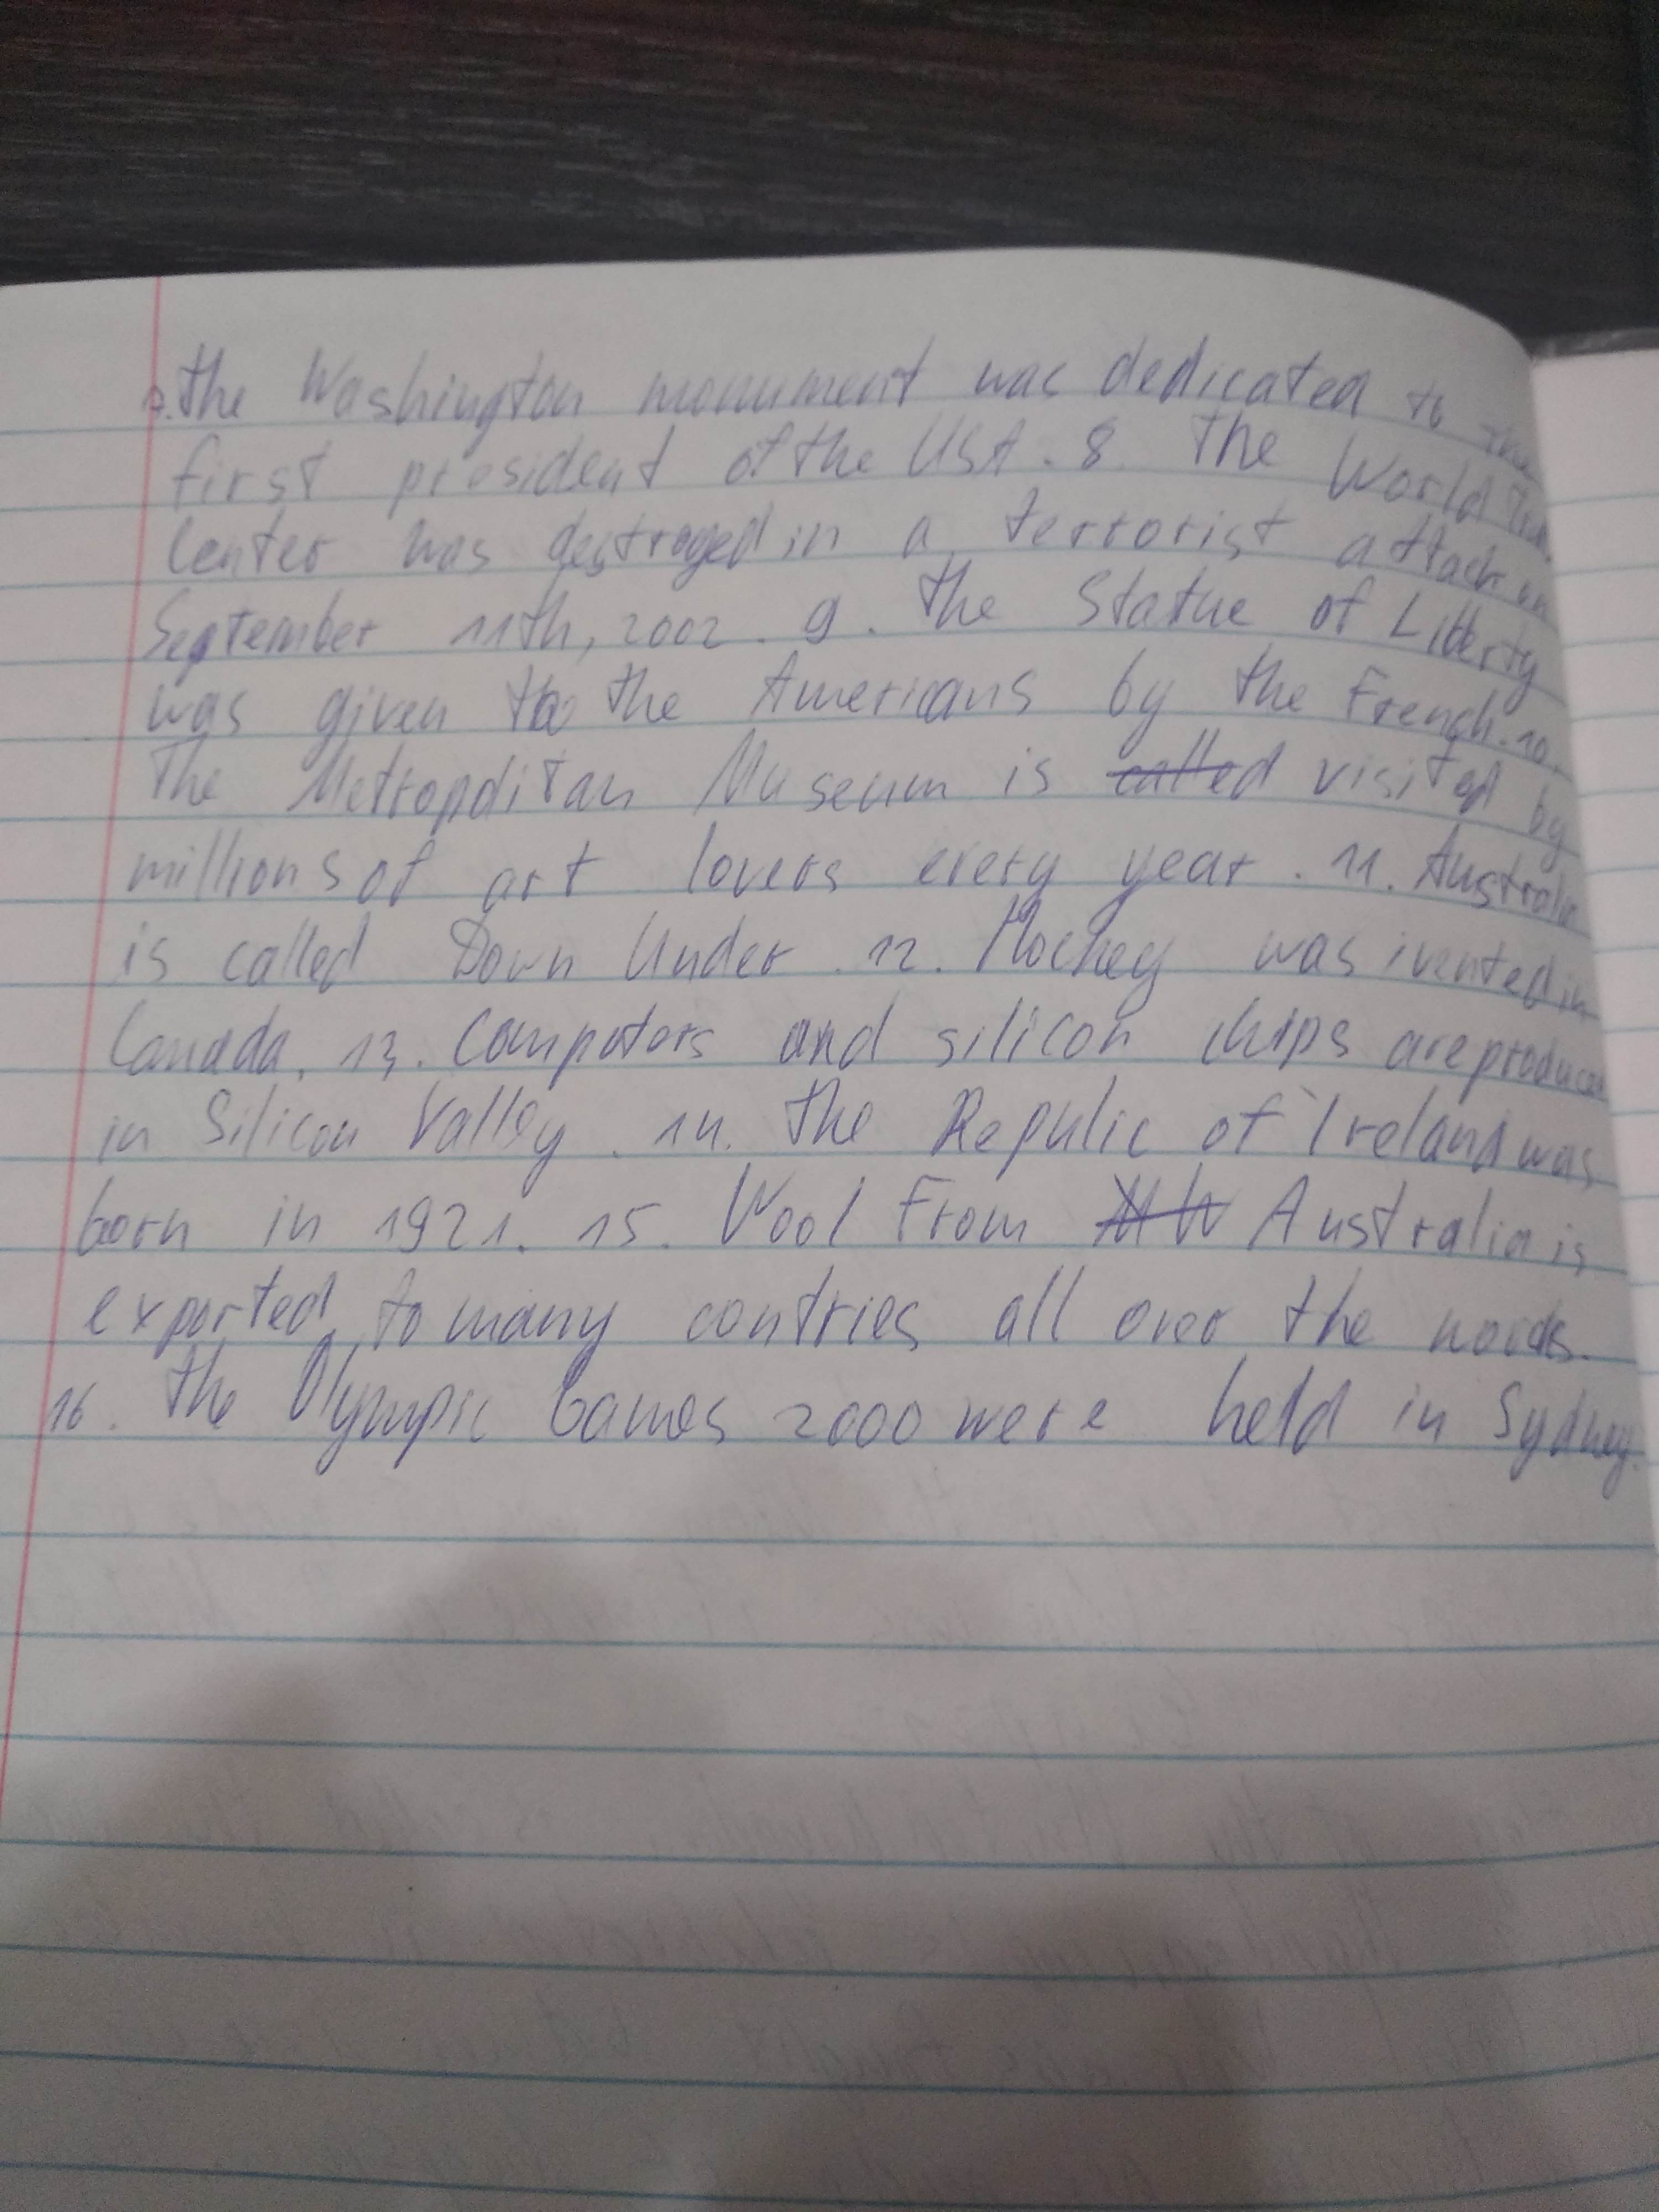 the Washington monument was dedicated to the
first president of the USA. 8. The World
Center was destroyed in a terrorist attack on
September 11th, 2002. 9. the Statue of Liberty
was given to the Americans by the French. 10.
The Metropolitan Museum is called visited by
millions of art lovers every year. 11. Australia
is called Down Under. 12. Hockey was ivented in
Canada. 13. Computers and silicon chips are produced
in Silicon Valley. 14. The Repulic of Ireland was
born in 1921. 15. Wool from Australia is
exported to many contries all over the
16. The Olympic Games 2000 were held in Sydney.